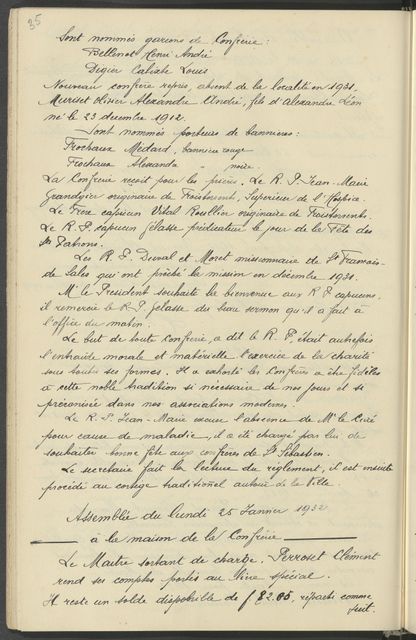 35
Sont nommés garçons de Confrérie :
Bellenot Henri André
Digier Calixte Louis
Nouveau confrère repris, absent de la localité en 1931.
Muriset Olivier Alexandre André, fils d'Alexandre Léon
né le 23 décembre 1912.
Sont nommés porteurs de bannières :
Frochaux Médard, bannière rouge
Frochaux Alexandre " noire.
La Confrérie reçoit pour les prières. Le R. P. Jean-Marie
Grandgier originaire de Froistorrents, Supérieur de l'Hospice.
Le Frère capucin Vital Roullier originaire de Troistorrents.
Le R. P. capucin Jelasse prédicateur le jour de la Fête des
Sts Patrons.
Les R. P. Duval et Moret missionnaire de St François-
de Sales qui ont prêché la mission en décembre 1931.
Mr le Président souhaite la bienvenue aux R P capucins,
il remercie le R. P. Jelasse du beau sermon qu'il a fait à
l'office du matin.
Le but de toute confrérie, a dit le R. P. était autrefois
l'entraide morale et matérielle l'exercice de la charité
sous toutes ses formes. Il a exhorté les Confrères à être fidèles
à cette noble tradition si nécessaire de nos jours et si
préconisée dans nos associations modernes.
Le R. P. Jean-Marie excuse l'absence de Mr le Curé
pour cause de maladie, il a été chargé par lui de
souhaiter bonne fête aux confrères de St Sébastien.
Le secrétaire fait la lecture du règlement, il est ensuite
procédé au cortège traditionnel autour de la Ville.
Assemblée du lundi 25 Janvier 1932
à la maison de la Confrérie
Le Maître sortant de charge, Perroset Clément
rend ses comptes portés au livre spécial.
Il reste un solde disponible de f 82.05 réparti comme
suit.